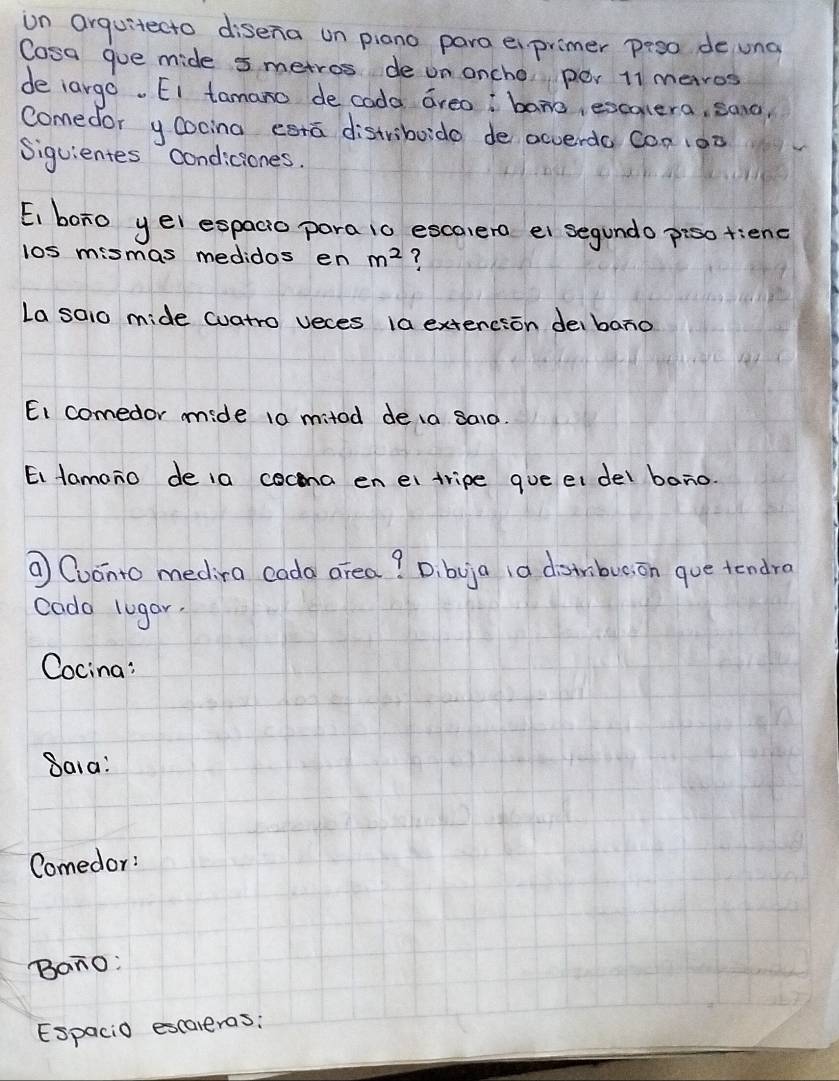 un arquitecto diseña un plano para el primer piso de una
Casa que mide 5 metros de un ancho, por 11 metros
de largo. El tamano de cada área: baño, escalera, sala,
Comedor y Cocina está distribuido de acuerdo con los
Siguientes condiciones.
El baño y el espacio para la escalera el segundo piso tiene
los mismas medidas en m²?
La sala mide cuatro veces la extención del baño
El comedor mide la mitad de la sala.
El tamaño de la cocina en el tripe que el del baño.
a) Cuánto medira cada área? Dibuja la distribución que tendra
Cada lugar.
Cocina:
Sala:
Comedor:
Baño:
Espacio escaleras: